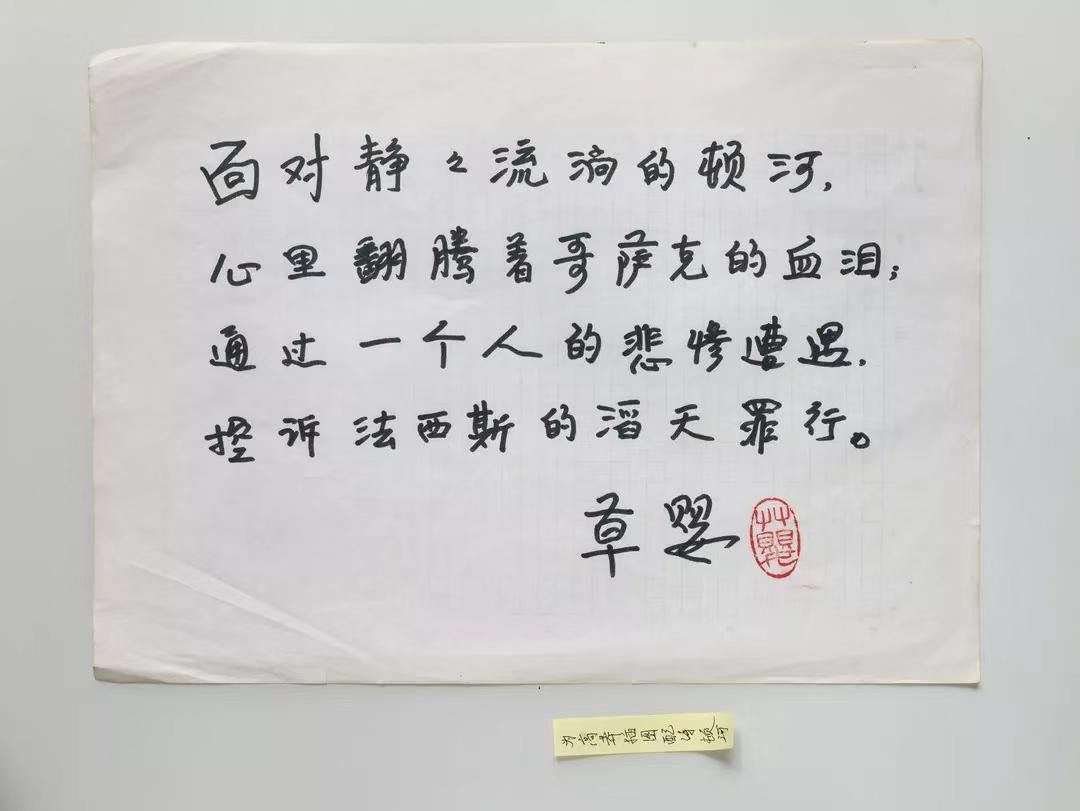 面对静々流淌的顿河，
心里翻腾着哥萨克的血泪；
通过一个人的悲惨遭遇，
控诉法西斯的滔天罪行。
草婴
草婴
为高莽插图配诗顿河